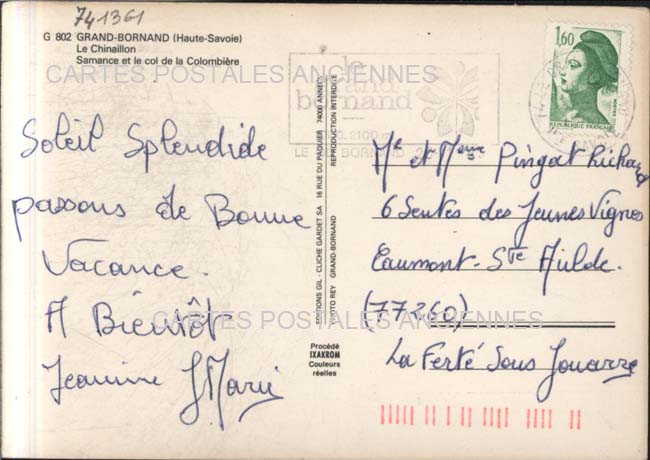 741361
G 802 GRAND-BORNAND (Haute-Savoie)
Le Chinaillon
Samance et le col de la Colombière
CARTES POSTALES ANCIENNES
le
grand
bornand
2100 m
LE BORNAND
1,60
REPUBLIQUE FRANÇAISE
Soleil Splendide
passons de Bonne
Vacance.
A Bientôt
Jeannine J Marie
EDITIONS GIL - CLICHE GARDET SA 16 RUE DU PAQUIER 74000 ANNECY
PHOTO REY GRAND-BORNAND REPRODUCTION INTERDITE
Procédé
IXAKROM
Couleurs
réelles
Mr et Mme Pingat Richard
6 Sentes des Jeunes Vignes
Eaumont-Ste Aulde.
(77260)
CARTES POSTALES ANCIENNES
La Ferté Sous Jouarre